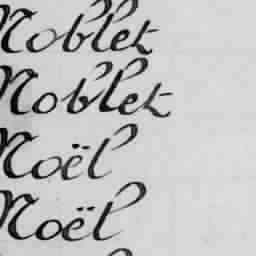 Noblet
Noblet
Noël
Noël